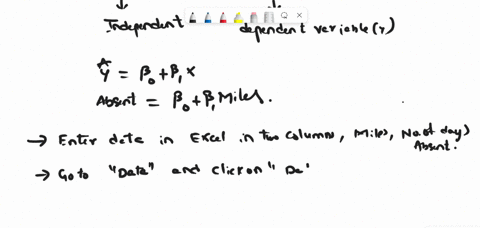 Independent dependent variable(Y)
Ŷ = β₀ + β₁ X
Absent = β₀ + β₁ Miles.
→ Enter data in Excel in two columns, Miles, No of day)
Absent.
→ Go to "Data" and click on "Da'